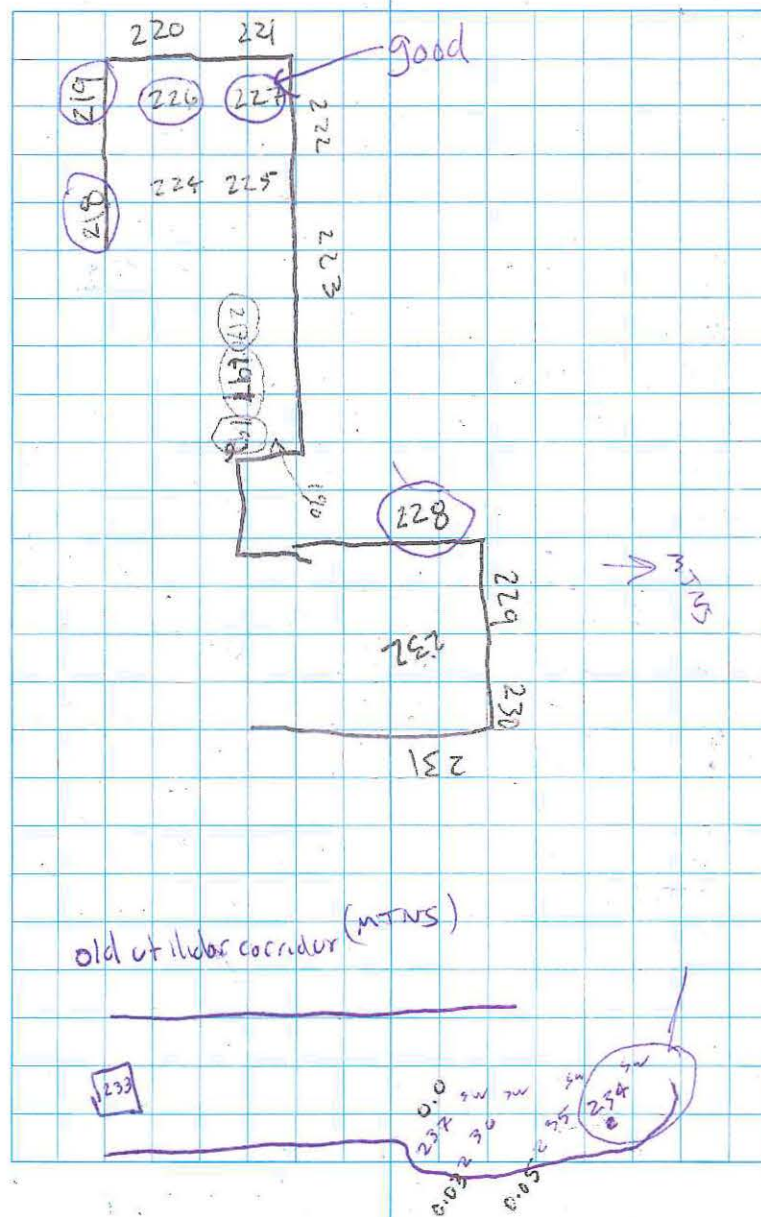 220 221 good
219 226 227 222
218 224 225
223
217
197
190
228
229
232
230
231
old utilidor corridor (MTNS)
233
0.0
237 SW SW SW SW
236 235 234
0.03 0.05